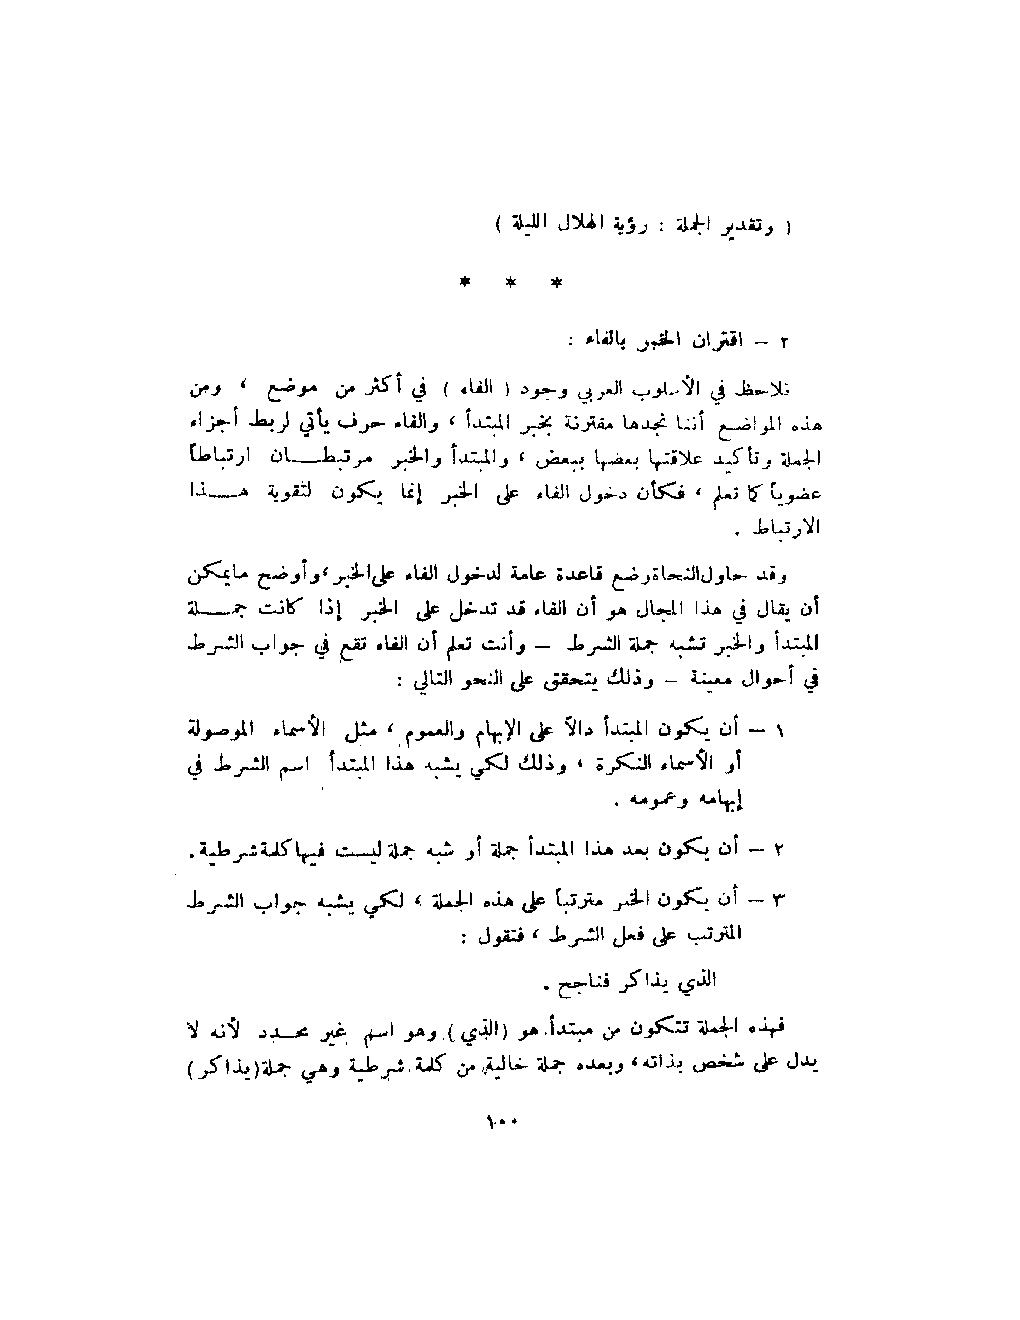 ( وتقدير الجملة : رؤية الهلال الليلة )
* * *
٢ – اقتران الخبر بالفاء :
نلاحظ في الأسلوب العربي وجود ( الفاء ) في أكثر من موضع ، ومن
هذه المواضع أننا نجدها مقترنة بخبر المبتدأ ، والفاء حرف يأتي لربط أجزاء
الجملة وتأكيد علاقتها بعضها ببعض ، والمبتدأ والخبر مرتبطــان ارتباطاً
عضوياً كما تعلم ، فكأن دخول الفاء على الخبر إنما يكون لتقوية هــذا
الارتباط .
وقد حاول النحاة وضع قاعدة عامة لدخول الفاء على الخبر ، وأوضح مايمكن
أن يقال في هذا المجال هو أن الفاء قد تدخل على الخبر إذا كانت جمــلة
المبتدأ والخبر تشبه جملة الشرط – وأنت تعلم أن الفاء تقع في جواب الشرط
في أحوال معينة – وذلك يتحقق على النحو التالي :
١ – أن يكون المبتدأ دالاً على الإبهام والعموم ، مثل الأسماء الموصولة
أو الأسماء النكرة ، وذلك لكي يشبه هذا المبتدأ اسم الشرط في
إبهامه وعمومه .
٢ – أن يكون بعد هذا المبتدأ جملة أو شبه جملة ليست فيها كلمة شرطية .
٣ – أن يكون الخبر مترتباً على هذه الجملة ، لكي يشبه جواب الشرط
المترتب على فعل الشرط ، فتقول :
الذي يذاكر فناجح .
فهذه الجملة تتكون من مبتدأ هو (الذي) وهو اسم غير محــدد لأنه لا
يدل على شخص بذاته ، وبعده جملة خالية من كلمة شرطية وهي جملة (يذاكر)
١٠٠